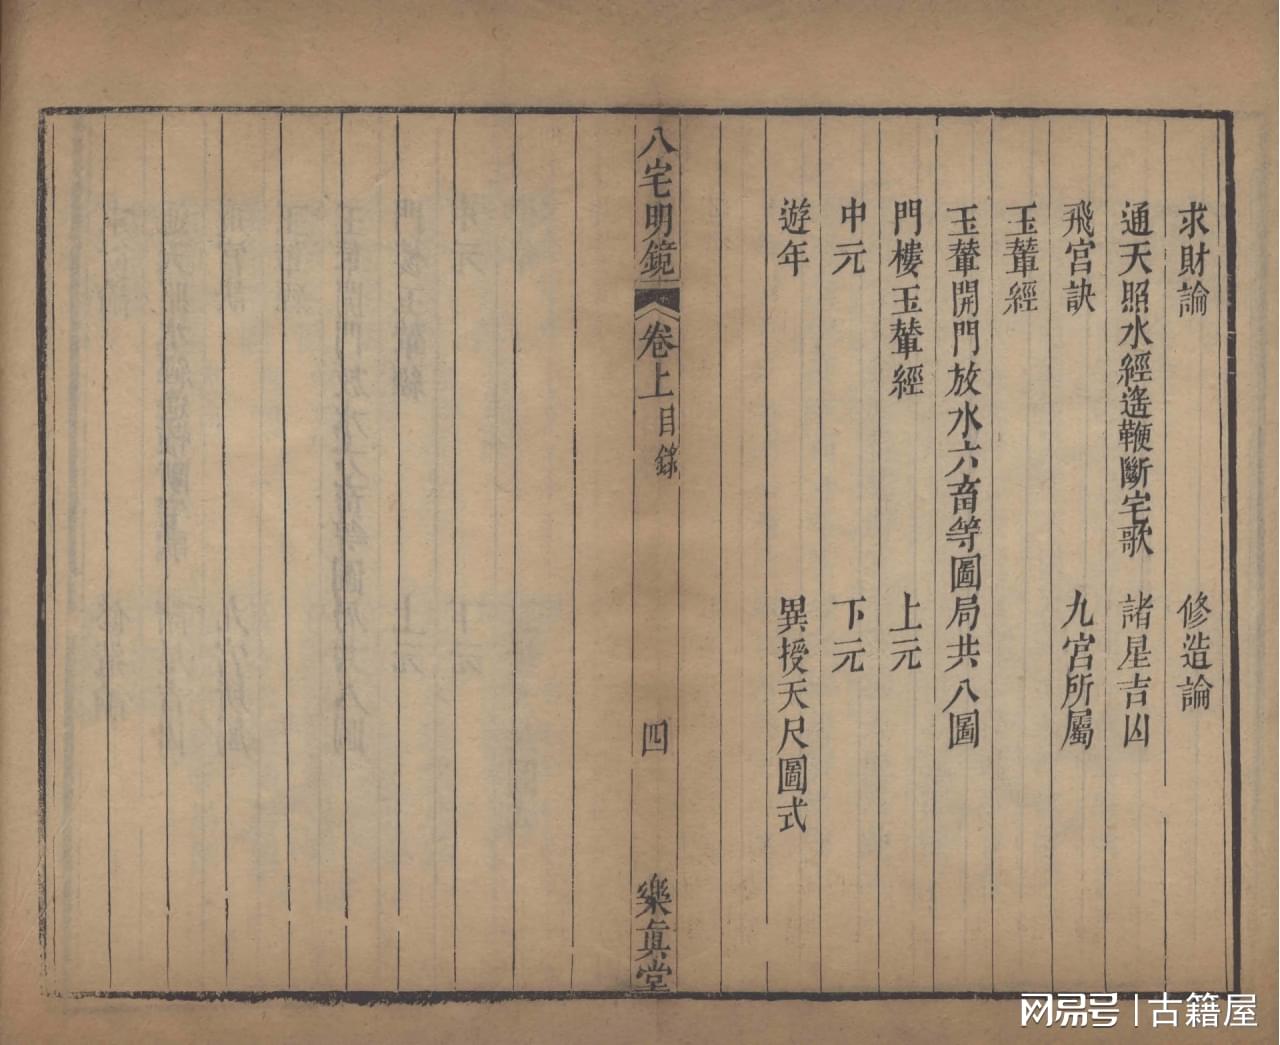 求財論　修造論
通天照水經遙鞭斷宅歌　諸星吉凶
飛宮訣　九宮所屬
玉輦經
玉輦開門放水六畜等圖局共八圖
門樓玉輦經　上元
中元　下元
遊年　異授天尺圖式
八宅明鏡　卷上目錄　四　樂真堂
网易号 | 古籍屋